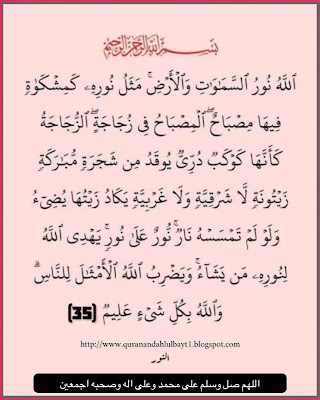 بِسْمِ اللَّهِ الرَّحْمَٰنِ الرَّحِيمِ
اللَّهُ نُورُ السَّمَاوَاتِ وَالْأَرْضِ ۚ مَثَلُ نُورِهِ كَمِشْكَوٰةٍ
فِيهَا مِصْبَاحٌ ۖ الْمِصْبَاحُ فِي زُجَاجَةٍ ۖ الزُّجَاجَةُ
كَأَنَّهَا كَوْكَبٌ دُرِّيٌّ يُوقَدُ مِن شَجَرَةٍ مُّبَـٰرَكَةٍ
زَيْتُونَةٍ لَّا شَرْقِيَّةٍ وَلَا غَرْبِيَّةٍ يَكَادُ زَيْتُهَا يُضِيٓءُ
وَلَوْ لَمْ تَمْسَسْهُ نَارٌ ۚ نُّورٌ عَلَىٰ نُورٍ ۗ يَهْدِي اللَّهُ
لِنُورِهِ مَن يَشَآءُ ۚ وَيَضْرِبُ اللَّهُ الْأَمْثَـٰلَ لِلنَّاسِ ۗ
وَاللَّهُ بِكُلِّ شَيْءٍ عَلِيمٌ (35)
http://www.quranandahlulbayt1.blogspot.com
النور
اللهم صل وسلم على محمد وعلى اله وصحبه اجمعين